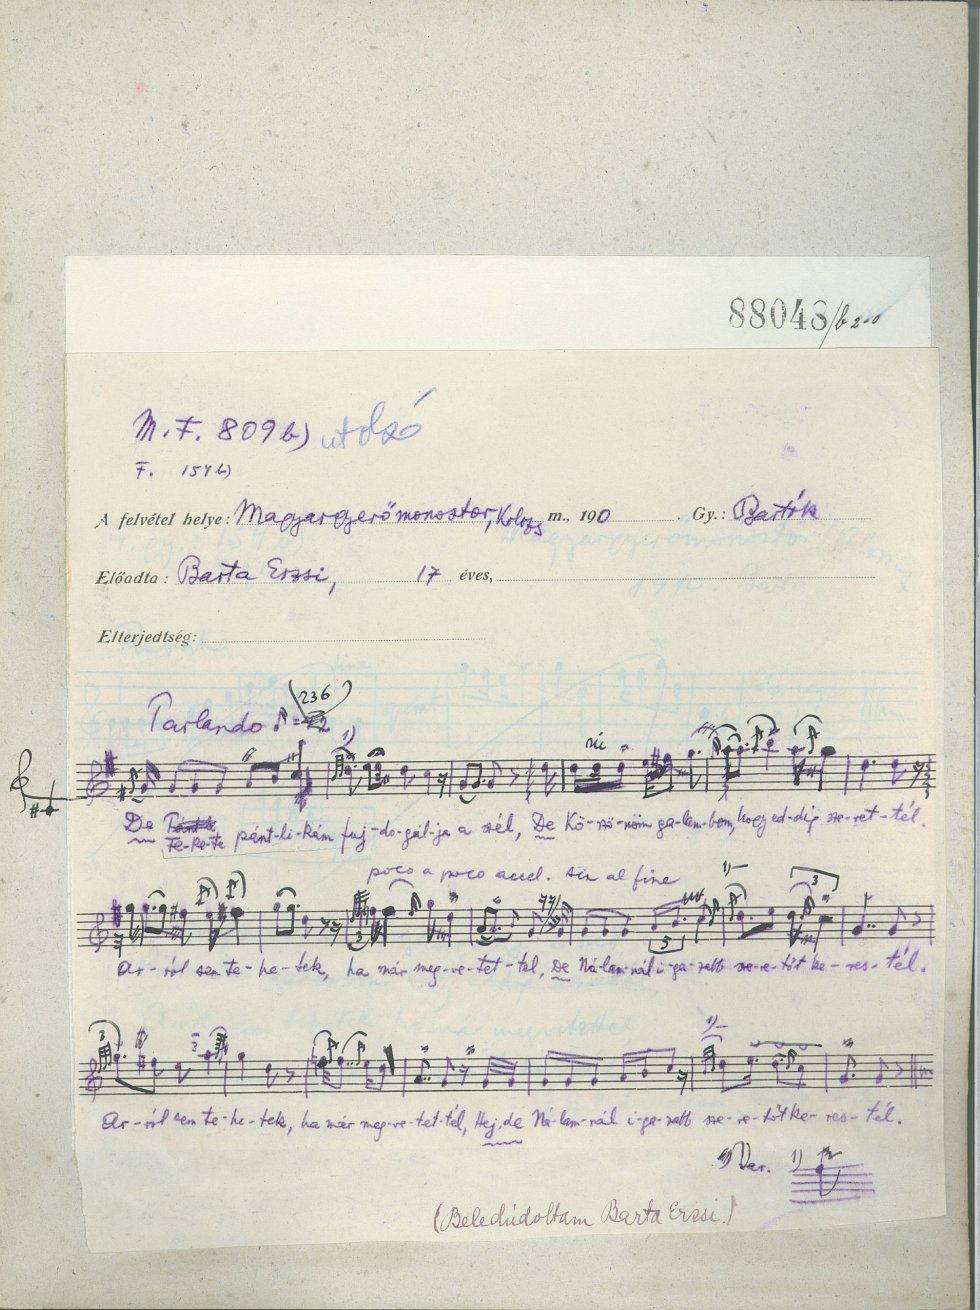 88048/b
M. F. 809 b) utolsó
F. 154 b)
A felvétel helye: Magyargyerőmonostor, Kolozs m., 190 Gy.: Bartók
Előadta: Barta Erzsi, 17 éves,
Elterjedtség:
Parlando ♪ = 236
1)
De Fe-ke-te pánt-li-kám fuj-do-gál-ja a szél, De Kö-szö-nöm ga-lam-bom, hogy ed-dig sze-ret-tél.
poco a poco accel. sin al fine
1)
Ar-ról sem te-he-tek, ha már meg-ve-tet-tél, De Ná-lam-nál i-ga-zabb sze-re-tőt ke-res-tél.
1)
Ar-ról sem te-he-tek, ha már meg-ve-tet-tél, Hej, de Ná-lam-nál i-ga-zabb sze-re-tőt ke-res-tél.
Var. 1)
(Beledúdoltam Barta Erzsi!)